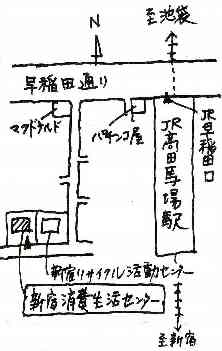 至池袋
N
早稲田通り
マクドナルド
パチンコ屋
JR高田馬場駅
JR早稲田口
新宿リサイクル活動センター
新宿消費生活センター
至新宿